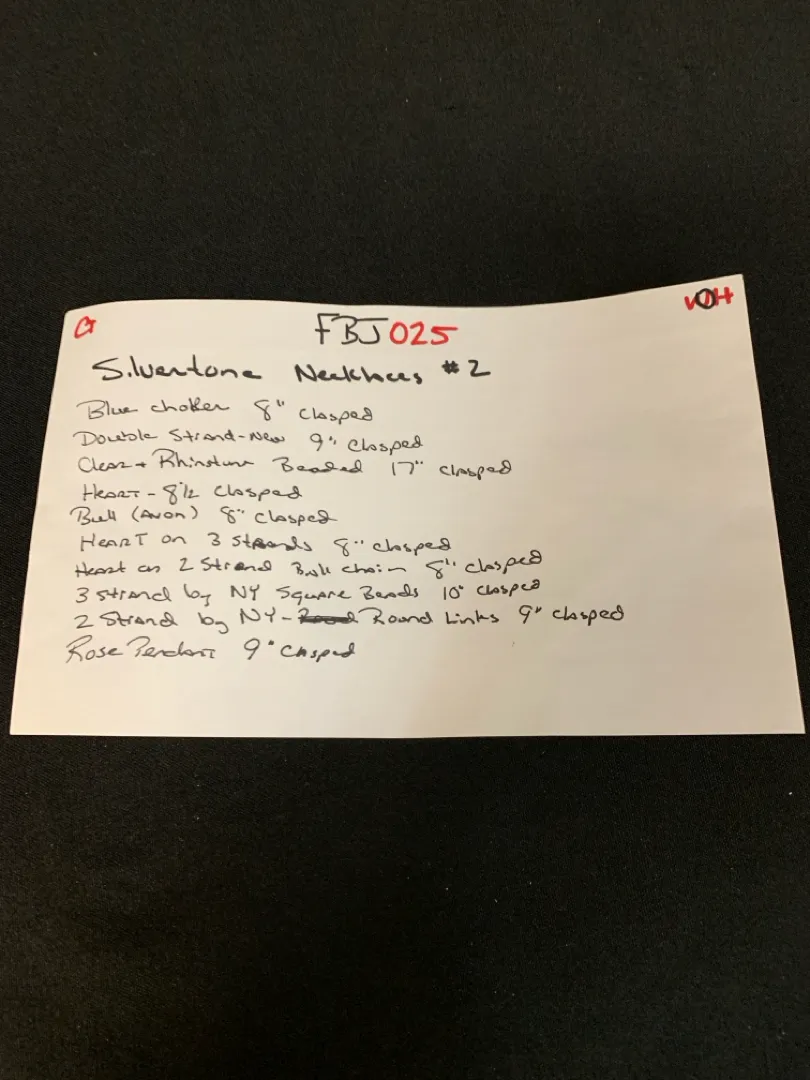 G
WOH
FBJ025
Silvertone Necklaces #2
Blue choker 8" clasped
Double Strand-New 9" clasped
Clear + Rhinstone Beaded 17" clasped
HEART - 8 1/2 clasped
(Avon) 8" clasped
HEART on 3 strands 8" clasped
Heart on 2 Strand chain 8" clasped
3 strand by NY Square Beads 10" clasped
2 Strand by NY - Round Links 9" clasped
Rose Pendant 9" clasped